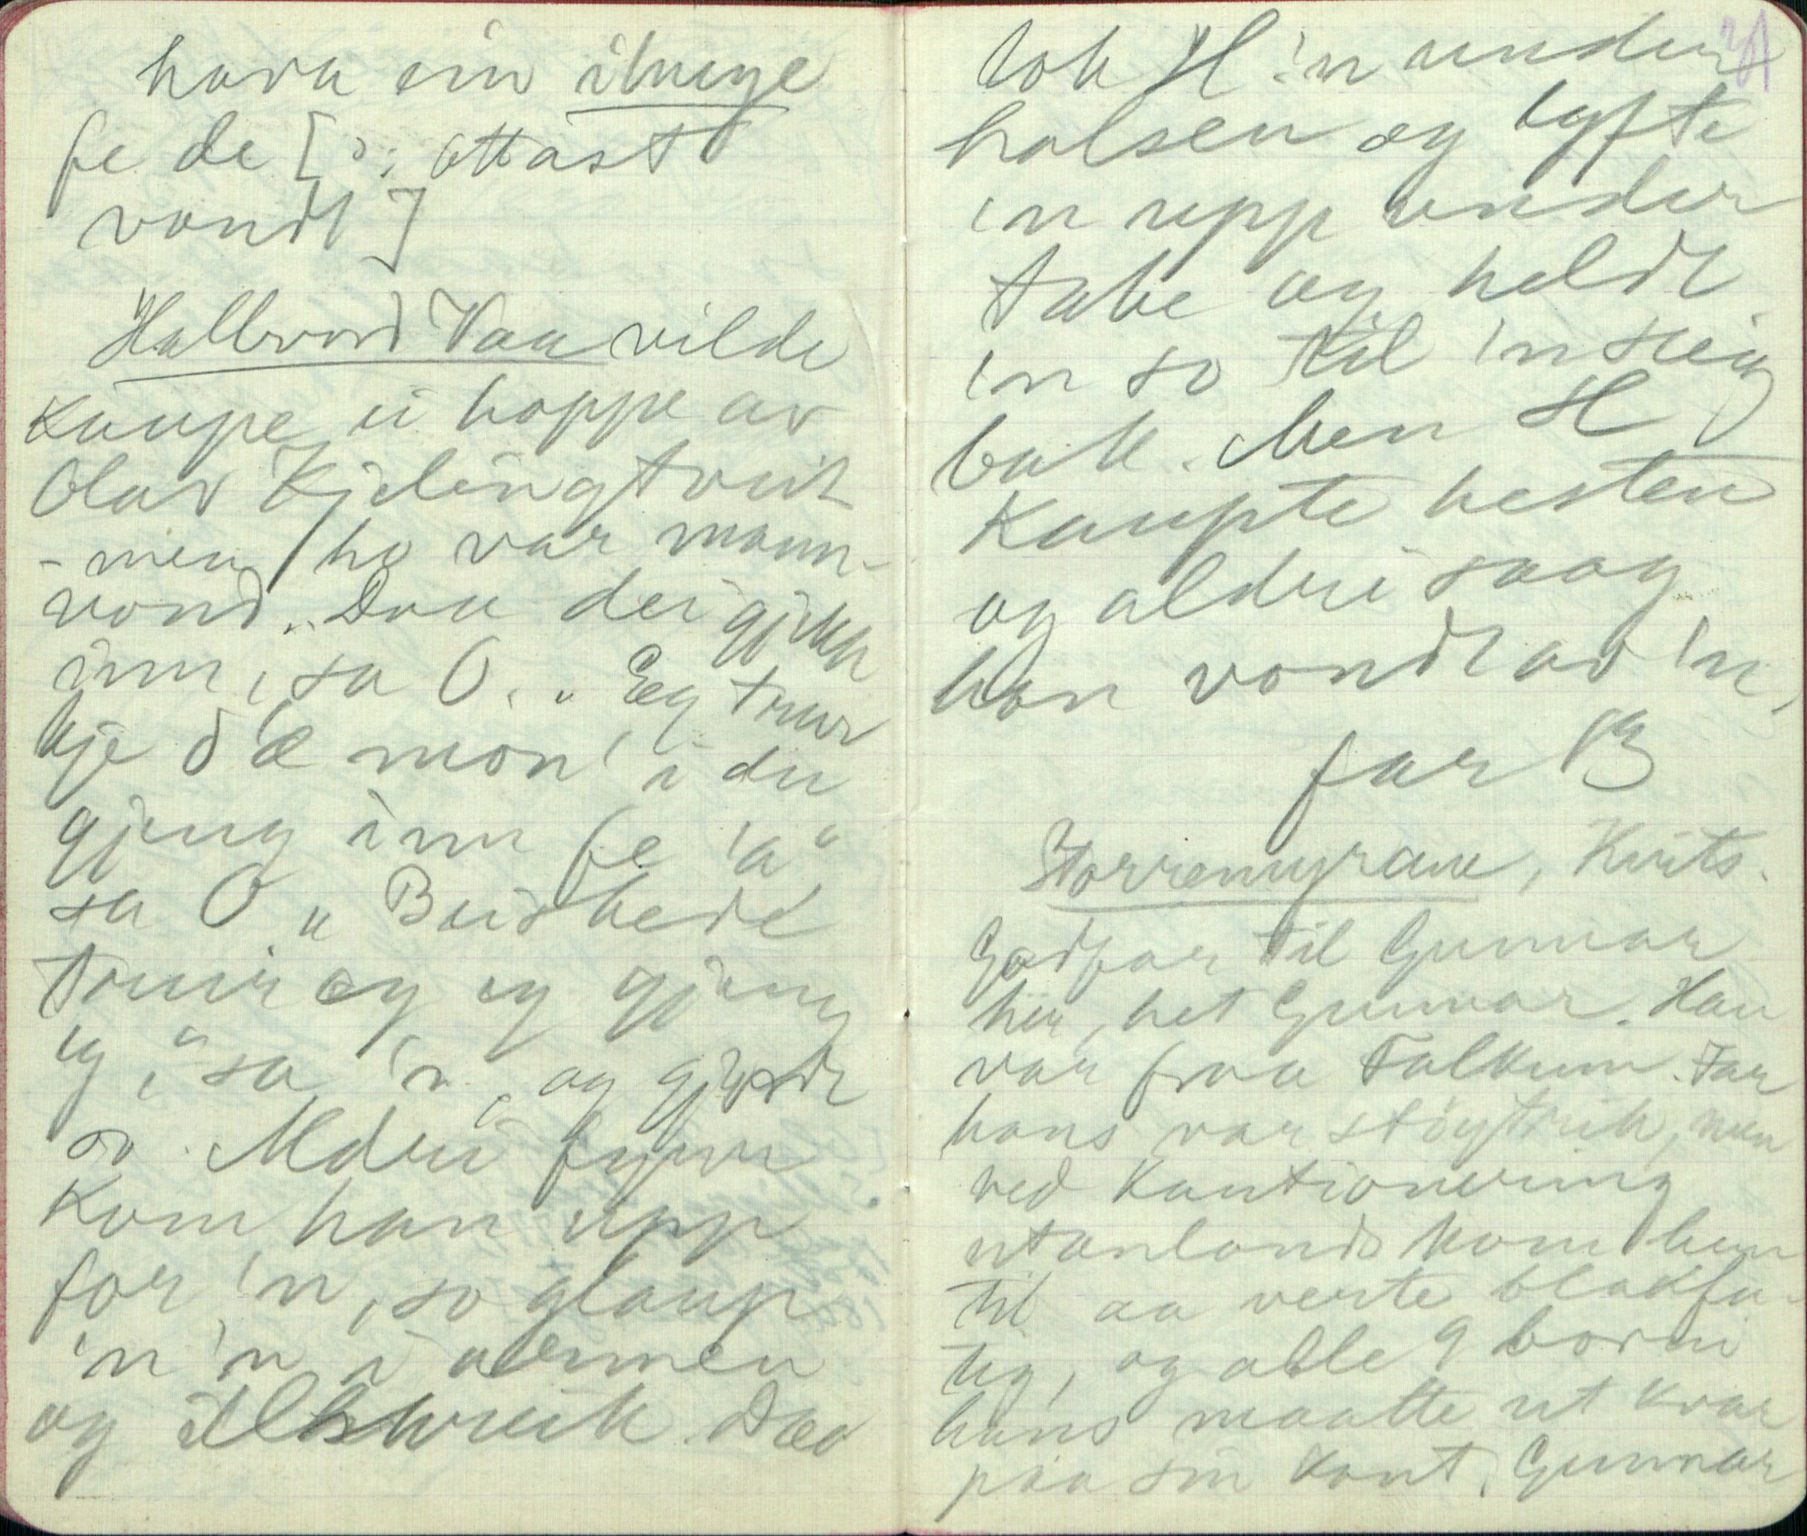 hava ein ilunge
fe de [ɔ: ottast
vondt]
Hallvord Vaa vilde
kaupe ei hoppe av
Olav Kjelingtveit
- men ho var mann-
vond. Daa dei gjekk
inn, sa O. "Eg trur
kje d'æ mon' i du
gjeng inn fe 'a"
sa O "Beisthedt
trur eg eg gjeng
eg," sa 'n, og gjorde
so. Aldri fyrr
kom han upp
for 'n, so glaup
'n 'n i armen
og illskreik. Daa
tok H 'n under
halsen og lyfte
'n upp under
take og heldt
'n so til 'n seig
bak. Men H
kaupte hesten
og aldri saag
han vondt av 'n,
far B
Storremyrane, Kvits.
Godfar til Gunnar
her, het Gunnar. Han
var fraa Falkum. Far
hans var støytrik, men
ved kautionering
utanlands kom han
til aa verte blakfat-
tig, og alle 9 borni
hans maatte ut kvar
paa sin kant. Gunnar